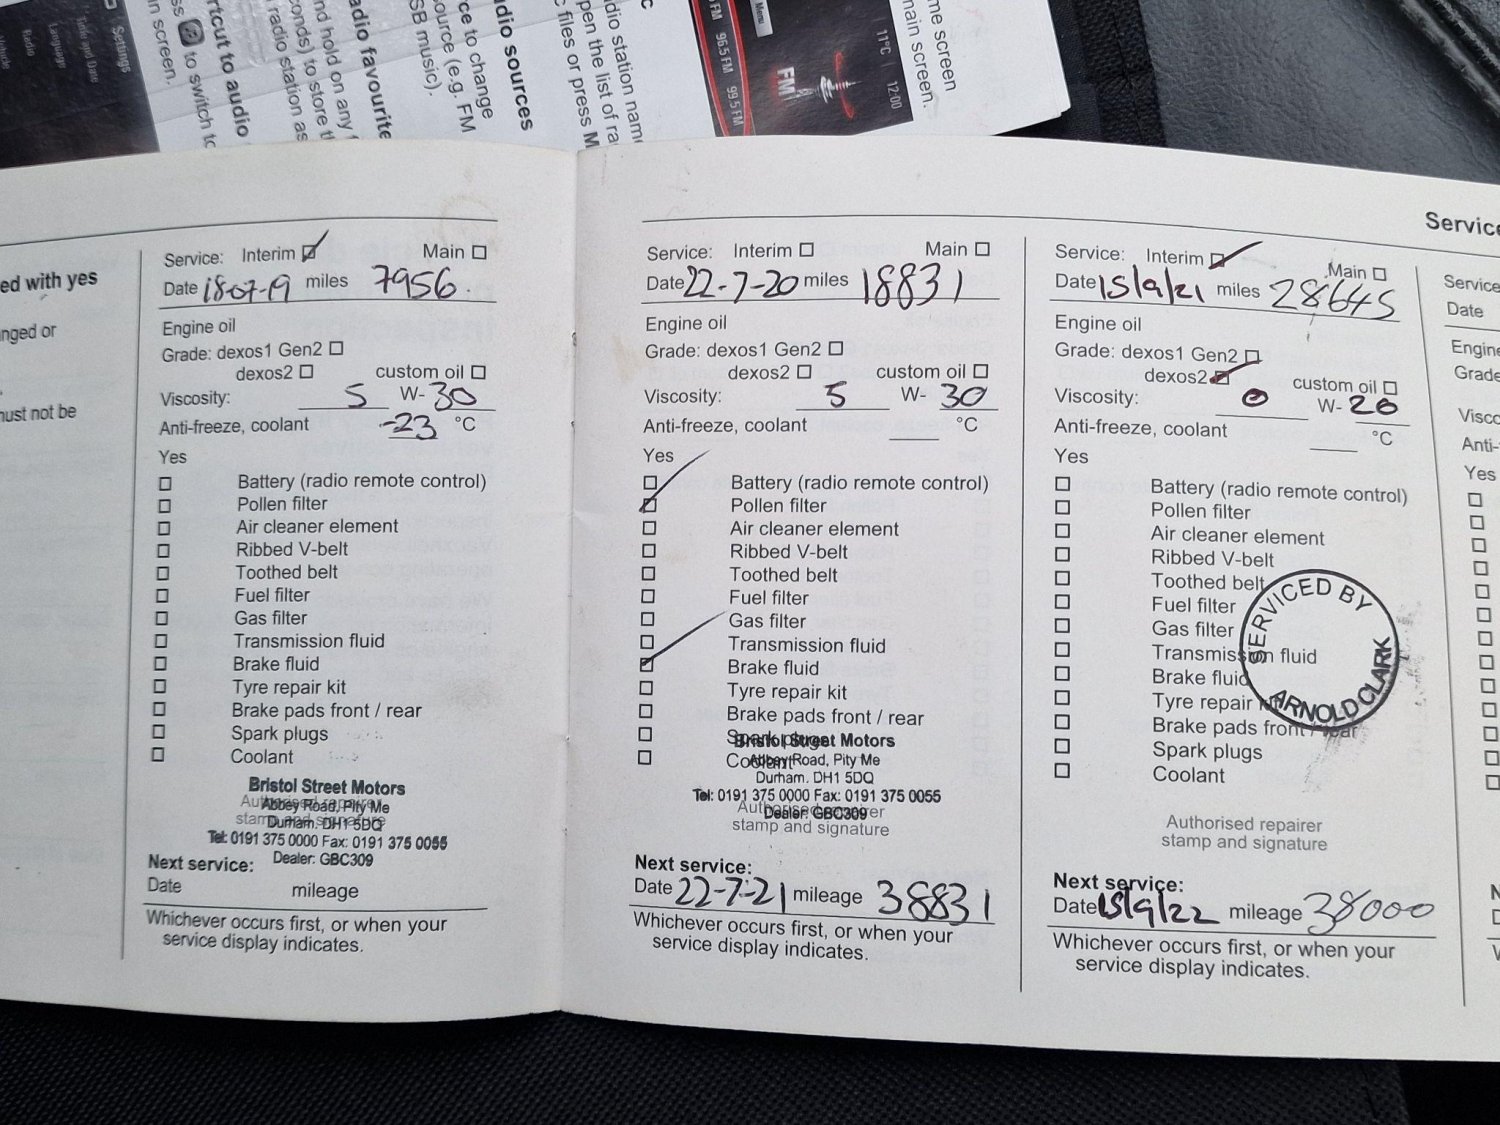 Settings
Time and Date
Language
Radio
Vehicle
n screen.
ss to switch to
rtcut to audio
radio station as
conds) to store th
nd hold on any f
adio favourite
SB music).
source (e.g. FM
rce to change
dio sources
c files or press M
pen the list of ra
dio station name
c
Menu
FM 96.5 FM 99.5 FM
FM
11°C 12:00
main screen.
me screen
ed with yes
nged or
must not be
Service: Interim Main
Date 18-07-19 miles 7956
Engine oil
Grade: dexos1 Gen2
dexos2 custom oil
Viscosity: 5 W- 30
Anti-freeze, coolant -23 °C
Yes
Battery (radio remote control)
Pollen filter
Air cleaner element
Ribbed V-belt
Toothed belt
Fuel filter
Gas filter
Transmission fluid
Brake fluid
Tyre repair kit
Brake pads front / rear
Spark plugs
Coolant
Bristol Street Motors
Authorised repairer
Abbey Road, Pity Me
stamp and signature
Durham. DH1 5DQ
Tel: 0191 375 0000 Fax: 0191 375 0055
Dealer: GBC309
Next service:
Date mileage
Whichever occurs first, or when your
service display indicates.
Service: Interim Main
Date 22-7-20 miles 18831
Engine oil
Grade: dexos1 Gen2
dexos2 custom oil
Viscosity: 5 W- 30
Anti-freeze, coolant °C
Yes
Battery (radio remote control)
Pollen filter
Air cleaner element
Ribbed V-belt
Toothed belt
Fuel filter
Gas filter
Transmission fluid
Brake fluid
Tyre repair kit
Brake pads front / rear
Spark plugs
Bristol Street Motors
Coolant
Abbey Road, Pity Me
Durham. DH1 5DQ
Tel: 0191 375 0000 Fax: 0191 375 0055
Authorised repairer
Dealer: GBC309
stamp and signature
Next service:
Date 22-7-21 mileage 38831
Whichever occurs first, or when your
service display indicates.
Service
Service: Interim Main
Date 15/9/21 miles 28645
Engine oil
Grade: dexos1 Gen2
dexos2 custom oil
Viscosity: 0 W- 20
Anti-freeze, coolant °C
Yes
Battery (radio remote control)
Pollen filter
Air cleaner element
Ribbed V-belt
Toothed belt
Fuel filter
Gas filter
Transmission fluid
Brake fluid
Tyre repair kit
Brake pads front / rear
Spark plugs
Coolant
SERVICED BY
ARNOLD CLARK
Authorised repairer
stamp and signature
Next service:
Date 15/9/22 mileage 38000
Whichever occurs first, or when your
service display indicates.
Service
Date
Engine
Grade
Visco
Anti-
Yes